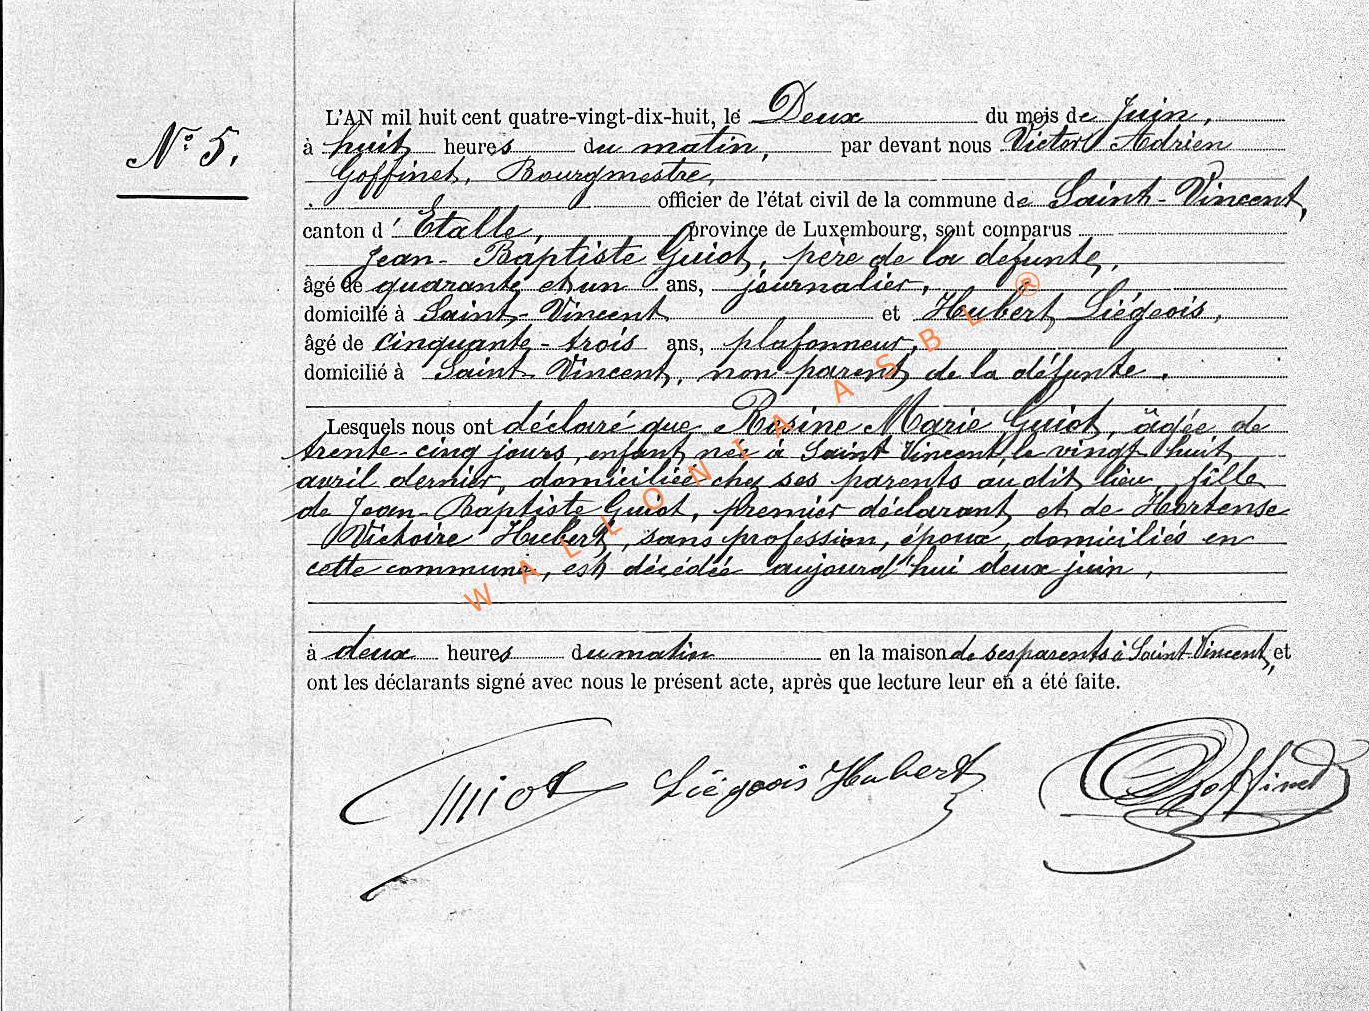 L'AN mil huit cent quatre-vingt-dix-huit, le Deux du mois de Juin,
N° 5.
à huit heures du matin, par devant nous Victor Adrien
Goffinet, Bourgmestre,
officier de l'état civil de la commune de Saint-Vincent,
canton d'Etalle, province de Luxembourg, sont comparus
Jean-Baptiste Guiot, père de la défunte,
âgé de quarante et un ans, journalier,
domicilié à Saint-Vincent et Hubert Liégeois,
âgé de cinquante-trois ans, plafonneur,
domicilié à Saint-Vincent, non parent de la défunte.
Lesquels nous ont déclaré que Rosine Marie Guiot, âgée de
trente-cinq jours, enfant née à Saint Vincent, le vingt huit
avril dernier, domiciliée chez ses parents au dit lieu, fille
de Jean-Baptiste Guiot, premier déclarant et de Hortense
Victoire Hubert, sans profession, époux, domiciliés en
cette commune, est décédée aujourd'hui deux juin,
à deux heures du matin en la maison de ses parents à Saint-Vincent, et
ont les déclarants signé avec nous le présent acte, après que lecture leur en a été faite.
Guiot Liégeois Hubert Goffinet
WALLONIA ASBL ®